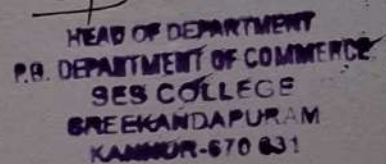 HEAD OF DEPARTMENT
P.G. DEPARTMENT OF COMMERCE
SES COLLEGE
SREEKANDAPURAM
KANNUR-670 631